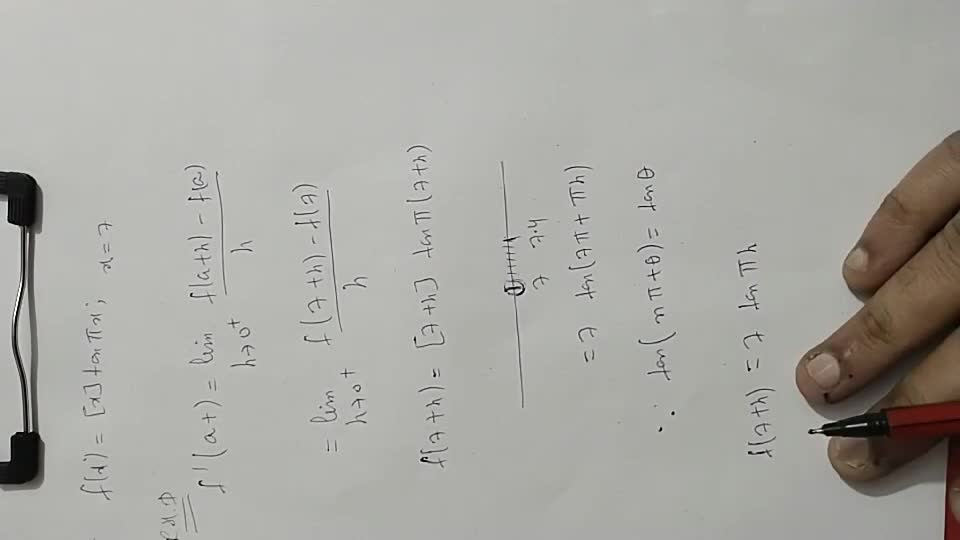 f(x) = [x] tan πx ; x = 7
R.H.D
f'(a+) = lim h→0+ f(a+h) - f(a) / h
= lim h→0+ f(7+h) - f(7) / h
f(7+h) = [7+h] tan π(7+h)
7 7.4
= 7 tan(7π + πh)
∴ tan(nπ + θ) = tan θ
f(7+h) = 7 tan πh